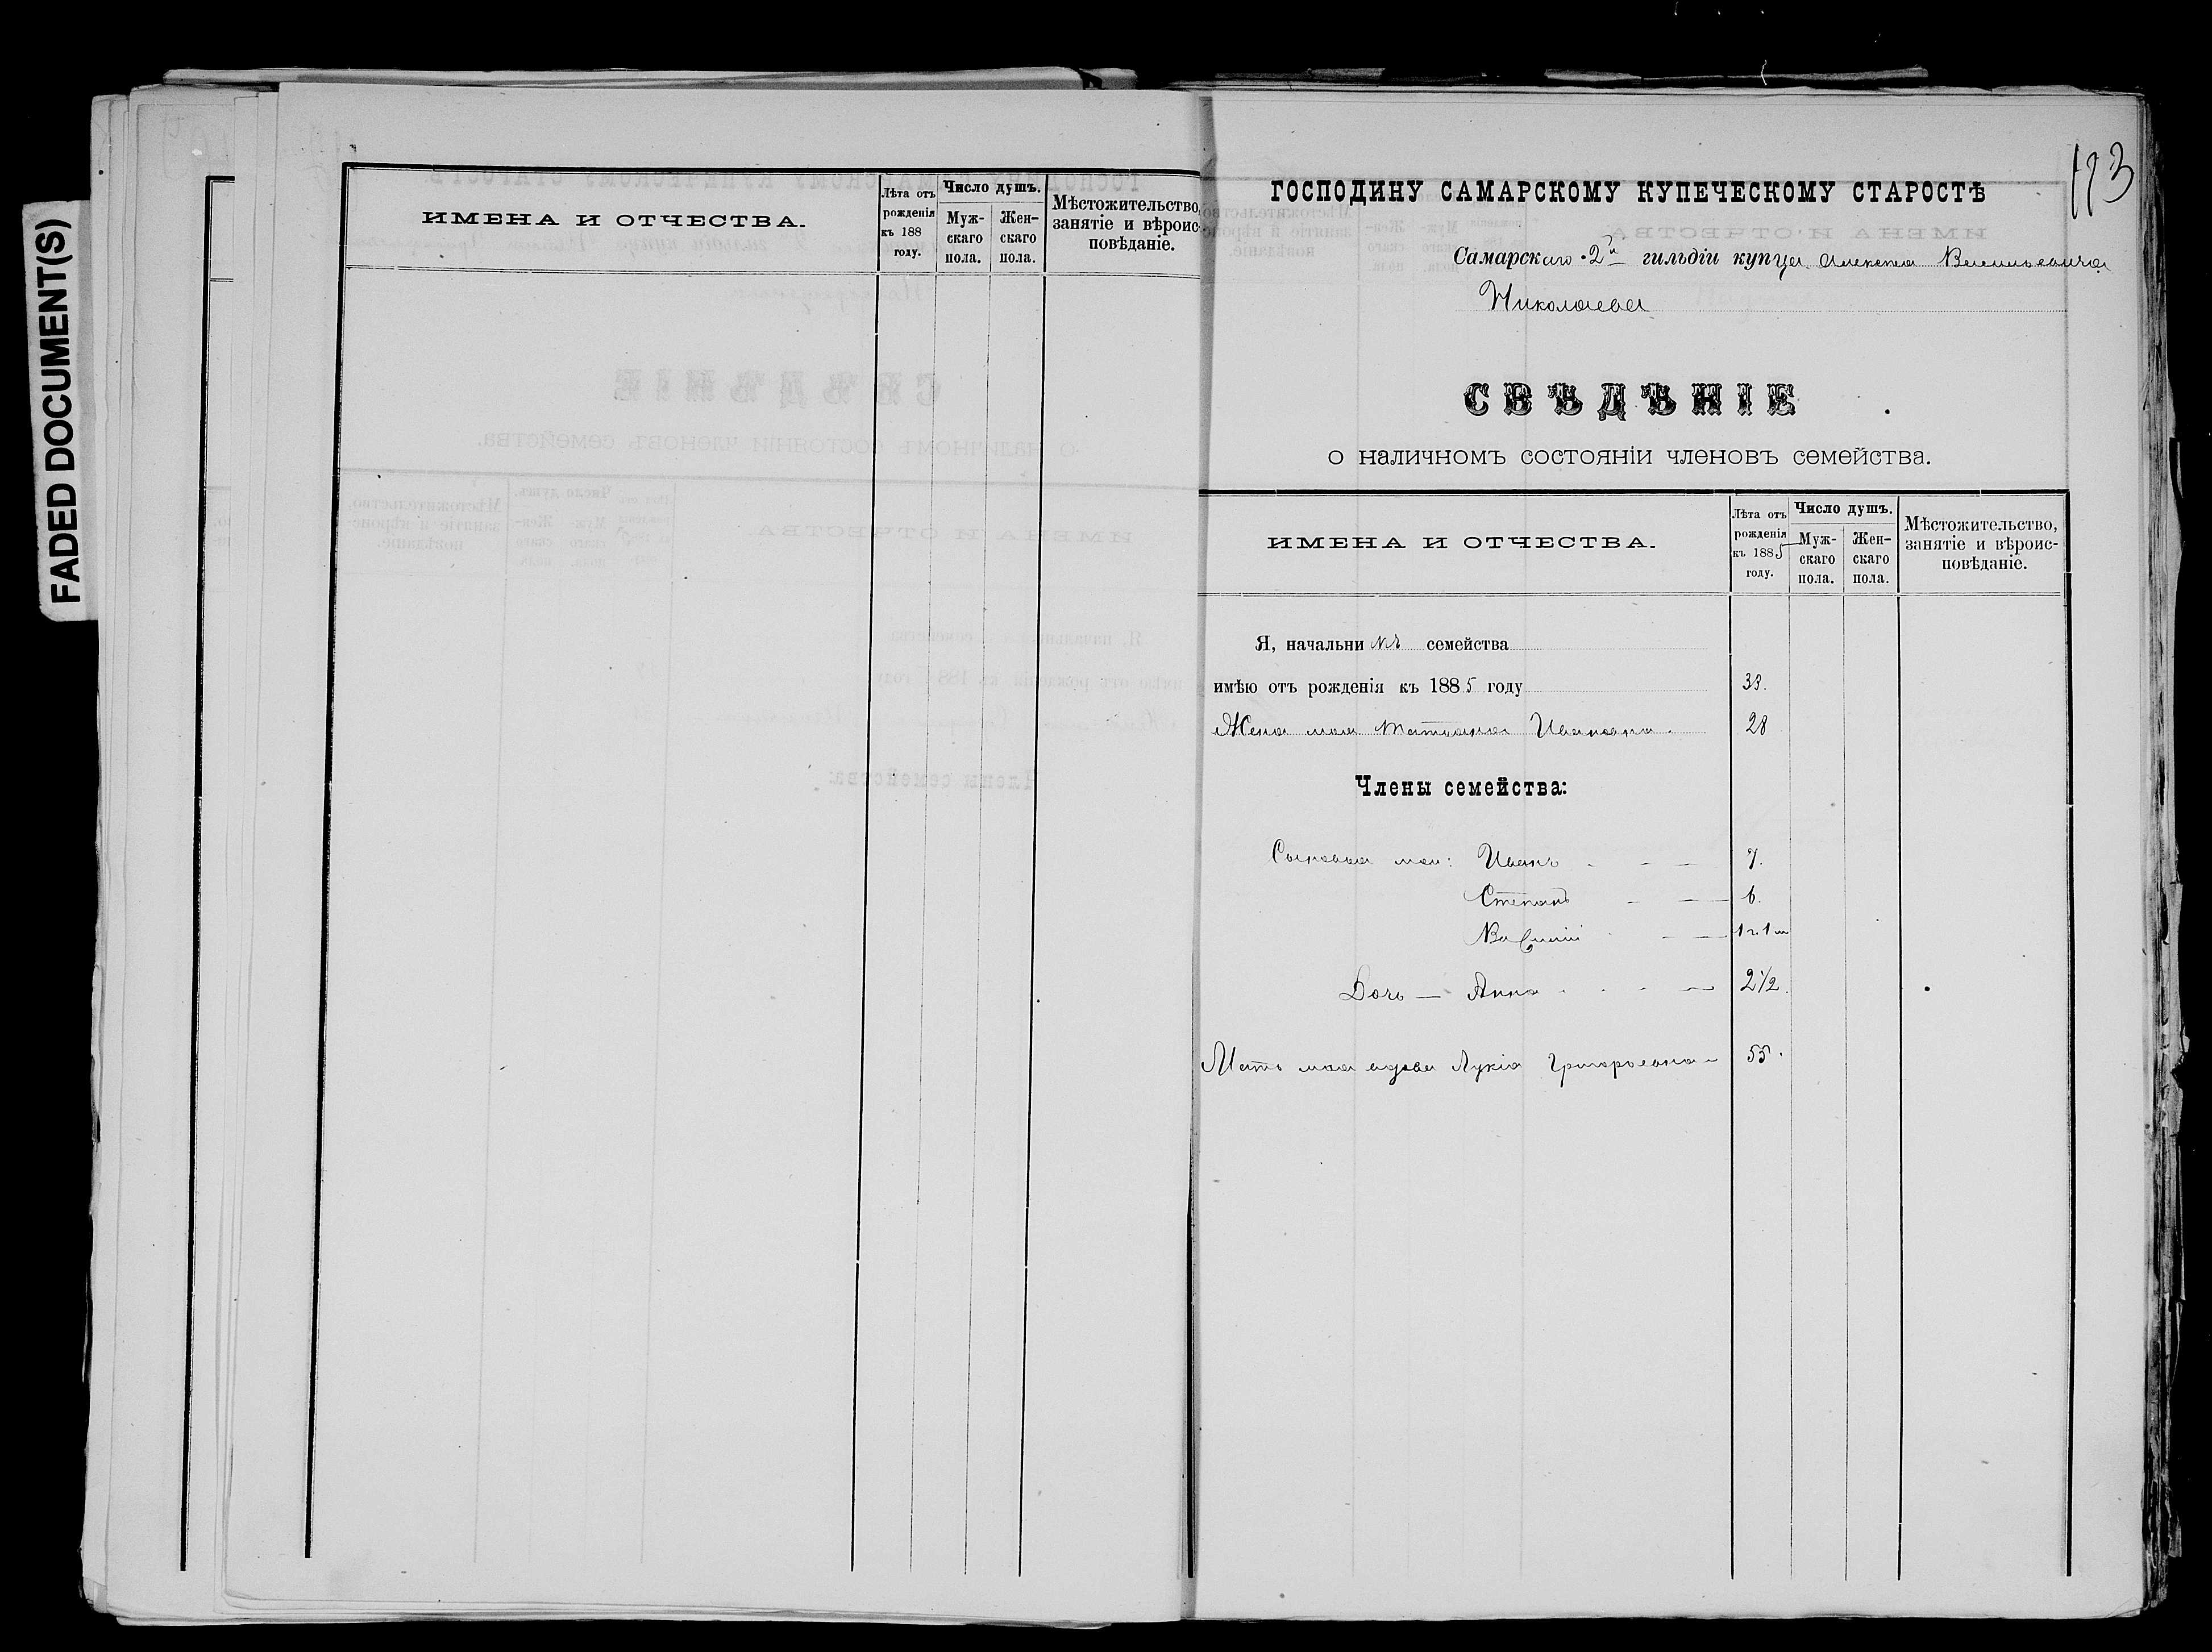 FADED DOCUMENT(S)
ИМЕНА И ОТЧЕСТВА.
Лѣта отъ рожденія къ 188 году.
Число душъ.
Мужскаго пола.
Женскаго пола.
Мѣстожительство, занятіе и вѣроисповѣданіе.
173
ГОСПОДИНУ САМАРСКОМУ КУПЕЧЕСКОМУ СТАРОСТѢ
Самарскаго 2й гильдіи купца Алексѣя Васильевича
Николаева
СВѢДѢНІЕ
о наличномъ состояніи членовъ семейства.
ИМЕНА И ОТЧЕСТВА.
Лѣта отъ рожденія къ 1885 году.
Число душъ.
Мужскаго пола.
Женскаго пола.
Мѣстожительство, занятіе и вѣроисповѣданіе.
Я, начальникъ семейства
имѣю отъ рожденія къ 1885 году 33.
Жена моя Татьяна Ивановна. 28
Члены семейства:
Сыновья мои: Иванъ 7.
Степанъ 6.
Василій 1 г. 1 м
Дочь — Анна 2 1/2.
Мать моя вдова Лукія Григорьевна 55.